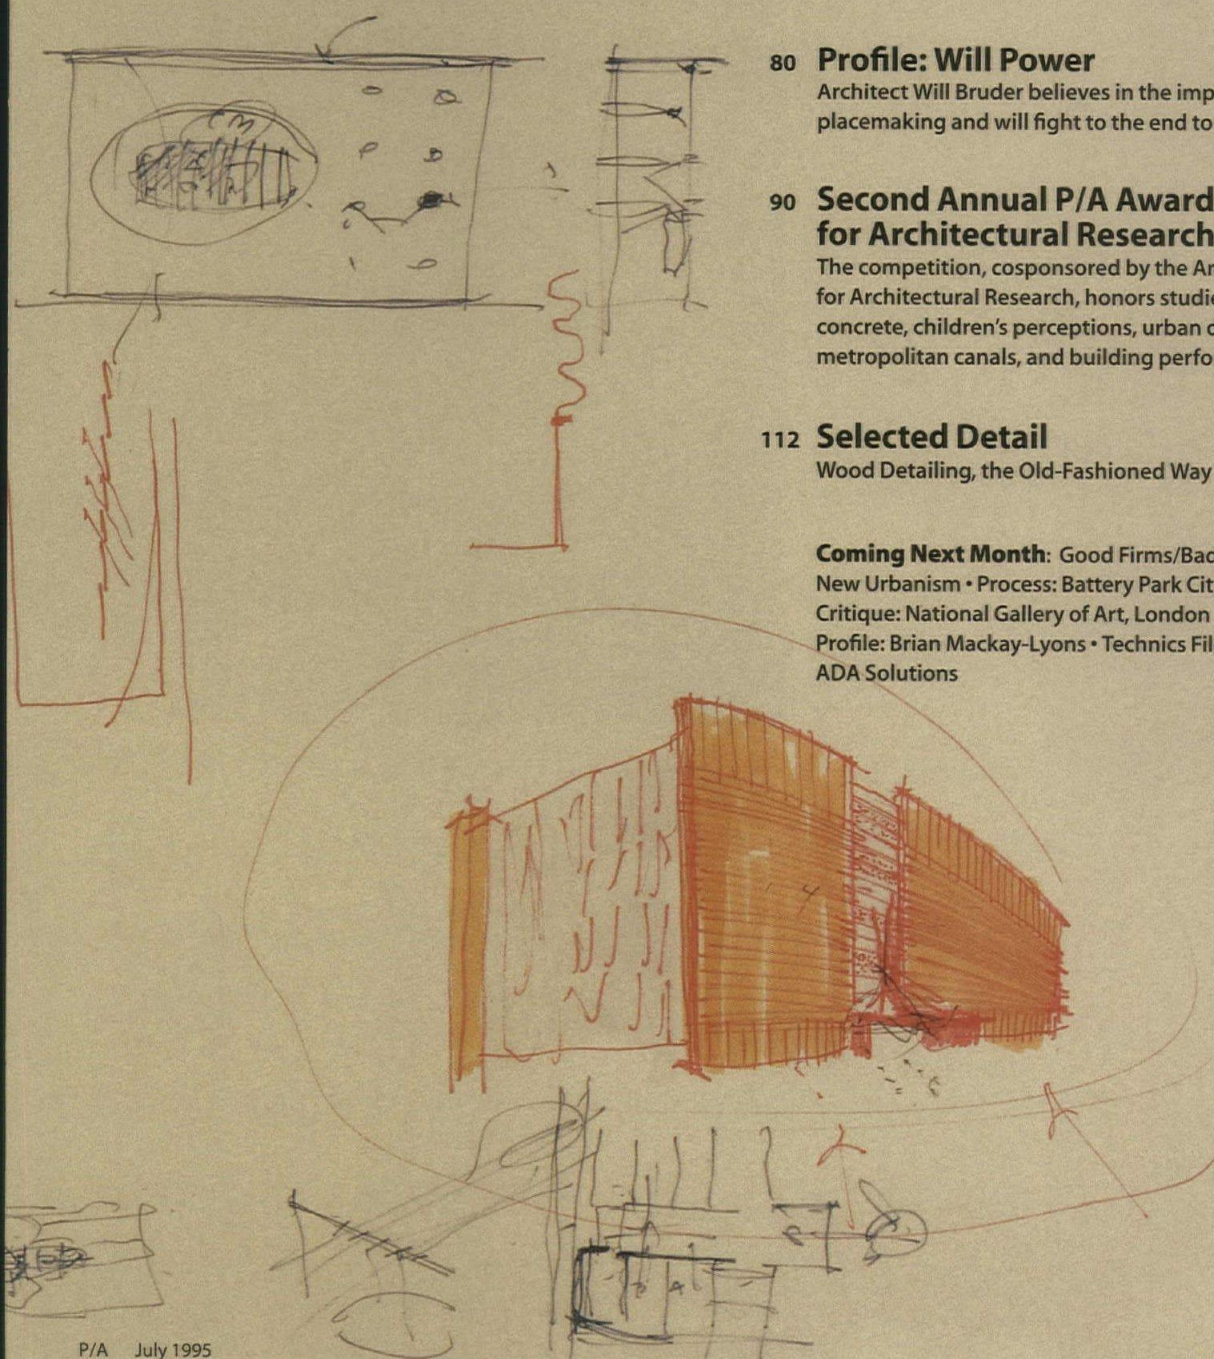 80 Profile: Will Power
Architect Will Bruder believes in the imp
placemaking and will fight to the end to
90 Second Annual P/A Award
for Architectural Research
The competition, cosponsored by the Ar
for Architectural Research, honors studie
concrete, children's perceptions, urban
metropolitan canals, and building perfo
112 Selected Detail
Wood Detailing, the Old-Fashioned Way
Coming Next Month: Good Firms/Bad
New Urbanism • Process: Battery Park Cit
Critique: National Gallery of Art, London
Profile: Brian Mackay-Lyons • Technics Fil
ADA Solutions
P/A July 1995